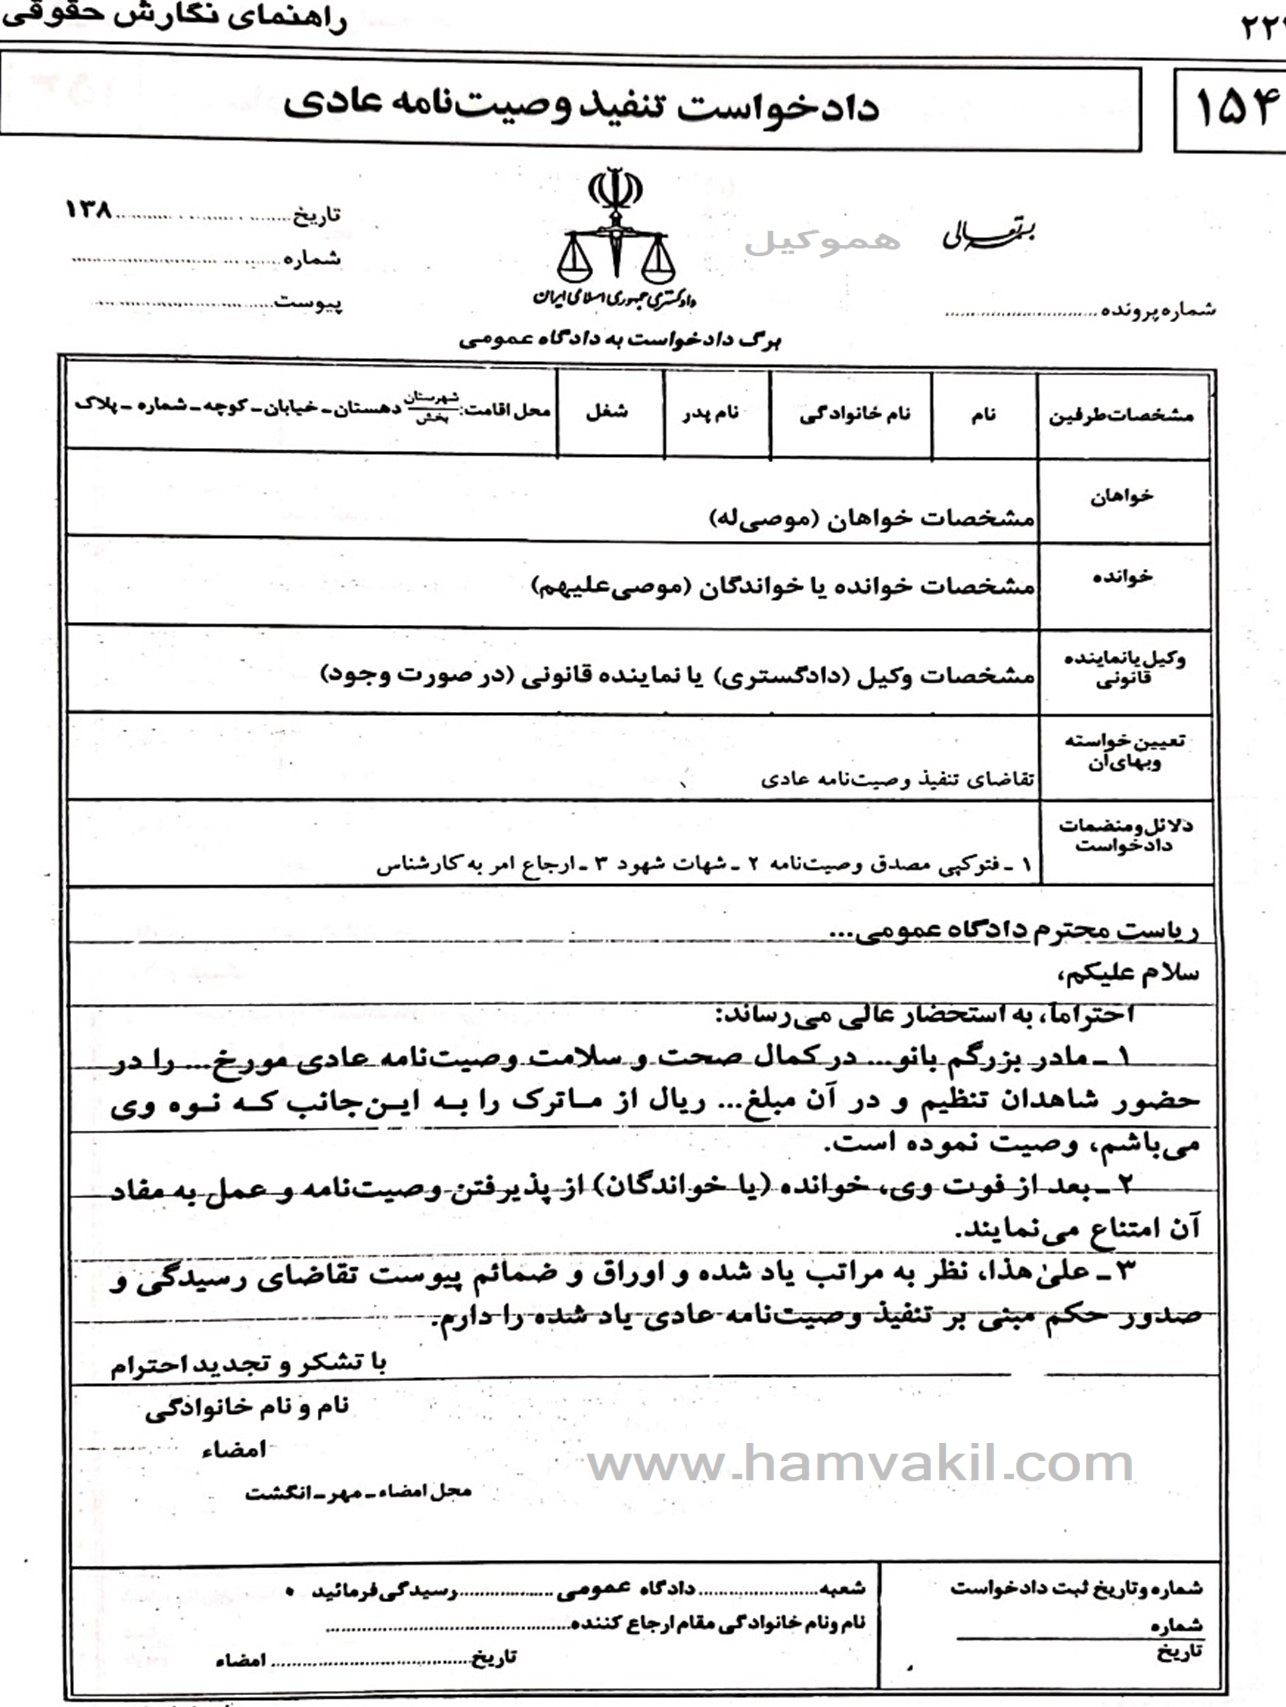 راهنمای نگارش حقوقی
۱۵۴
دادخواست تنفیذ وصیت‌نامه عادی
بسمه تعالی
هموکیل
تاریخ ............ ۱۳۸
شماره ............
پیوست ............
دادگستری جمهوری اسلامی ایران
شماره پرونده ............
برگ دادخواست به دادگاه عمومی
مشخصات طرفین
نام
نام خانوادگی
نام پدر
شغل
محل اقامت: شهرستان / بخش دهستان ـ خیابان ـ کوچه ـ شماره ـ پلاک
خواهان
مشخصات خواهان (موصی‌له)
خوانده
مشخصات خوانده یا خواندگان (موصی‌علیهم)
وکیل یا نماینده
قانونی
مشخصات وکیل (دادگستری) یا نماینده قانونی (در صورت وجود)
تعیین خواسته
وبهای‌آن
تقاضای تنفیذ وصیت‌نامه عادی
دلائل و منضمات
دادخواست
۱ ـ فتوکپی مصدق وصیت‌نامه ۲ ـ شهات شهود ۳ ـ ارجاع امر به کارشناس
ریاست محترم دادگاه عمومی...
سلام علیکم،
احتراماً، به استحضار عالی می‌رساند:
۱ ـ مادر بزرگم بانو... در کمال صحت و سلامت وصیت‌نامه عادی مورخ... را در
حضور شاهدان تنظیم و در آن مبلغ... ریال از ماترک را به این‌جانب که نوه وی
می‌باشم، وصیت نموده است.
۲ ـ بعد از فوت وی، خوانده (یا خواندگان) از پذیرفتن وصیت‌نامه و عمل به مفاد
آن امتناع می‌نمایند.
۳ ـ علیٰ‌هذا، نظر به مراتب یاد شده و اوراق و ضمائم پیوست تقاضای رسیدگی و
صدور حکم مبنی بر تنفیذ وصیت‌نامه عادی یاد شده را دارم.
با تشکر و تجدید احترام
نام و نام خانوادگی
امضاء
www.hamvakil.com
محل امضاء ـ مهر ـ انگشت
شماره و تاریخ ثبت دادخواست
شماره
تاریخ
شعبه ............ دادگاه عمومی ............ رسیدگی فرمائید
نام ونام خانوادگی مقام ارجاع کننده ............
تاریخ ............ امضاء